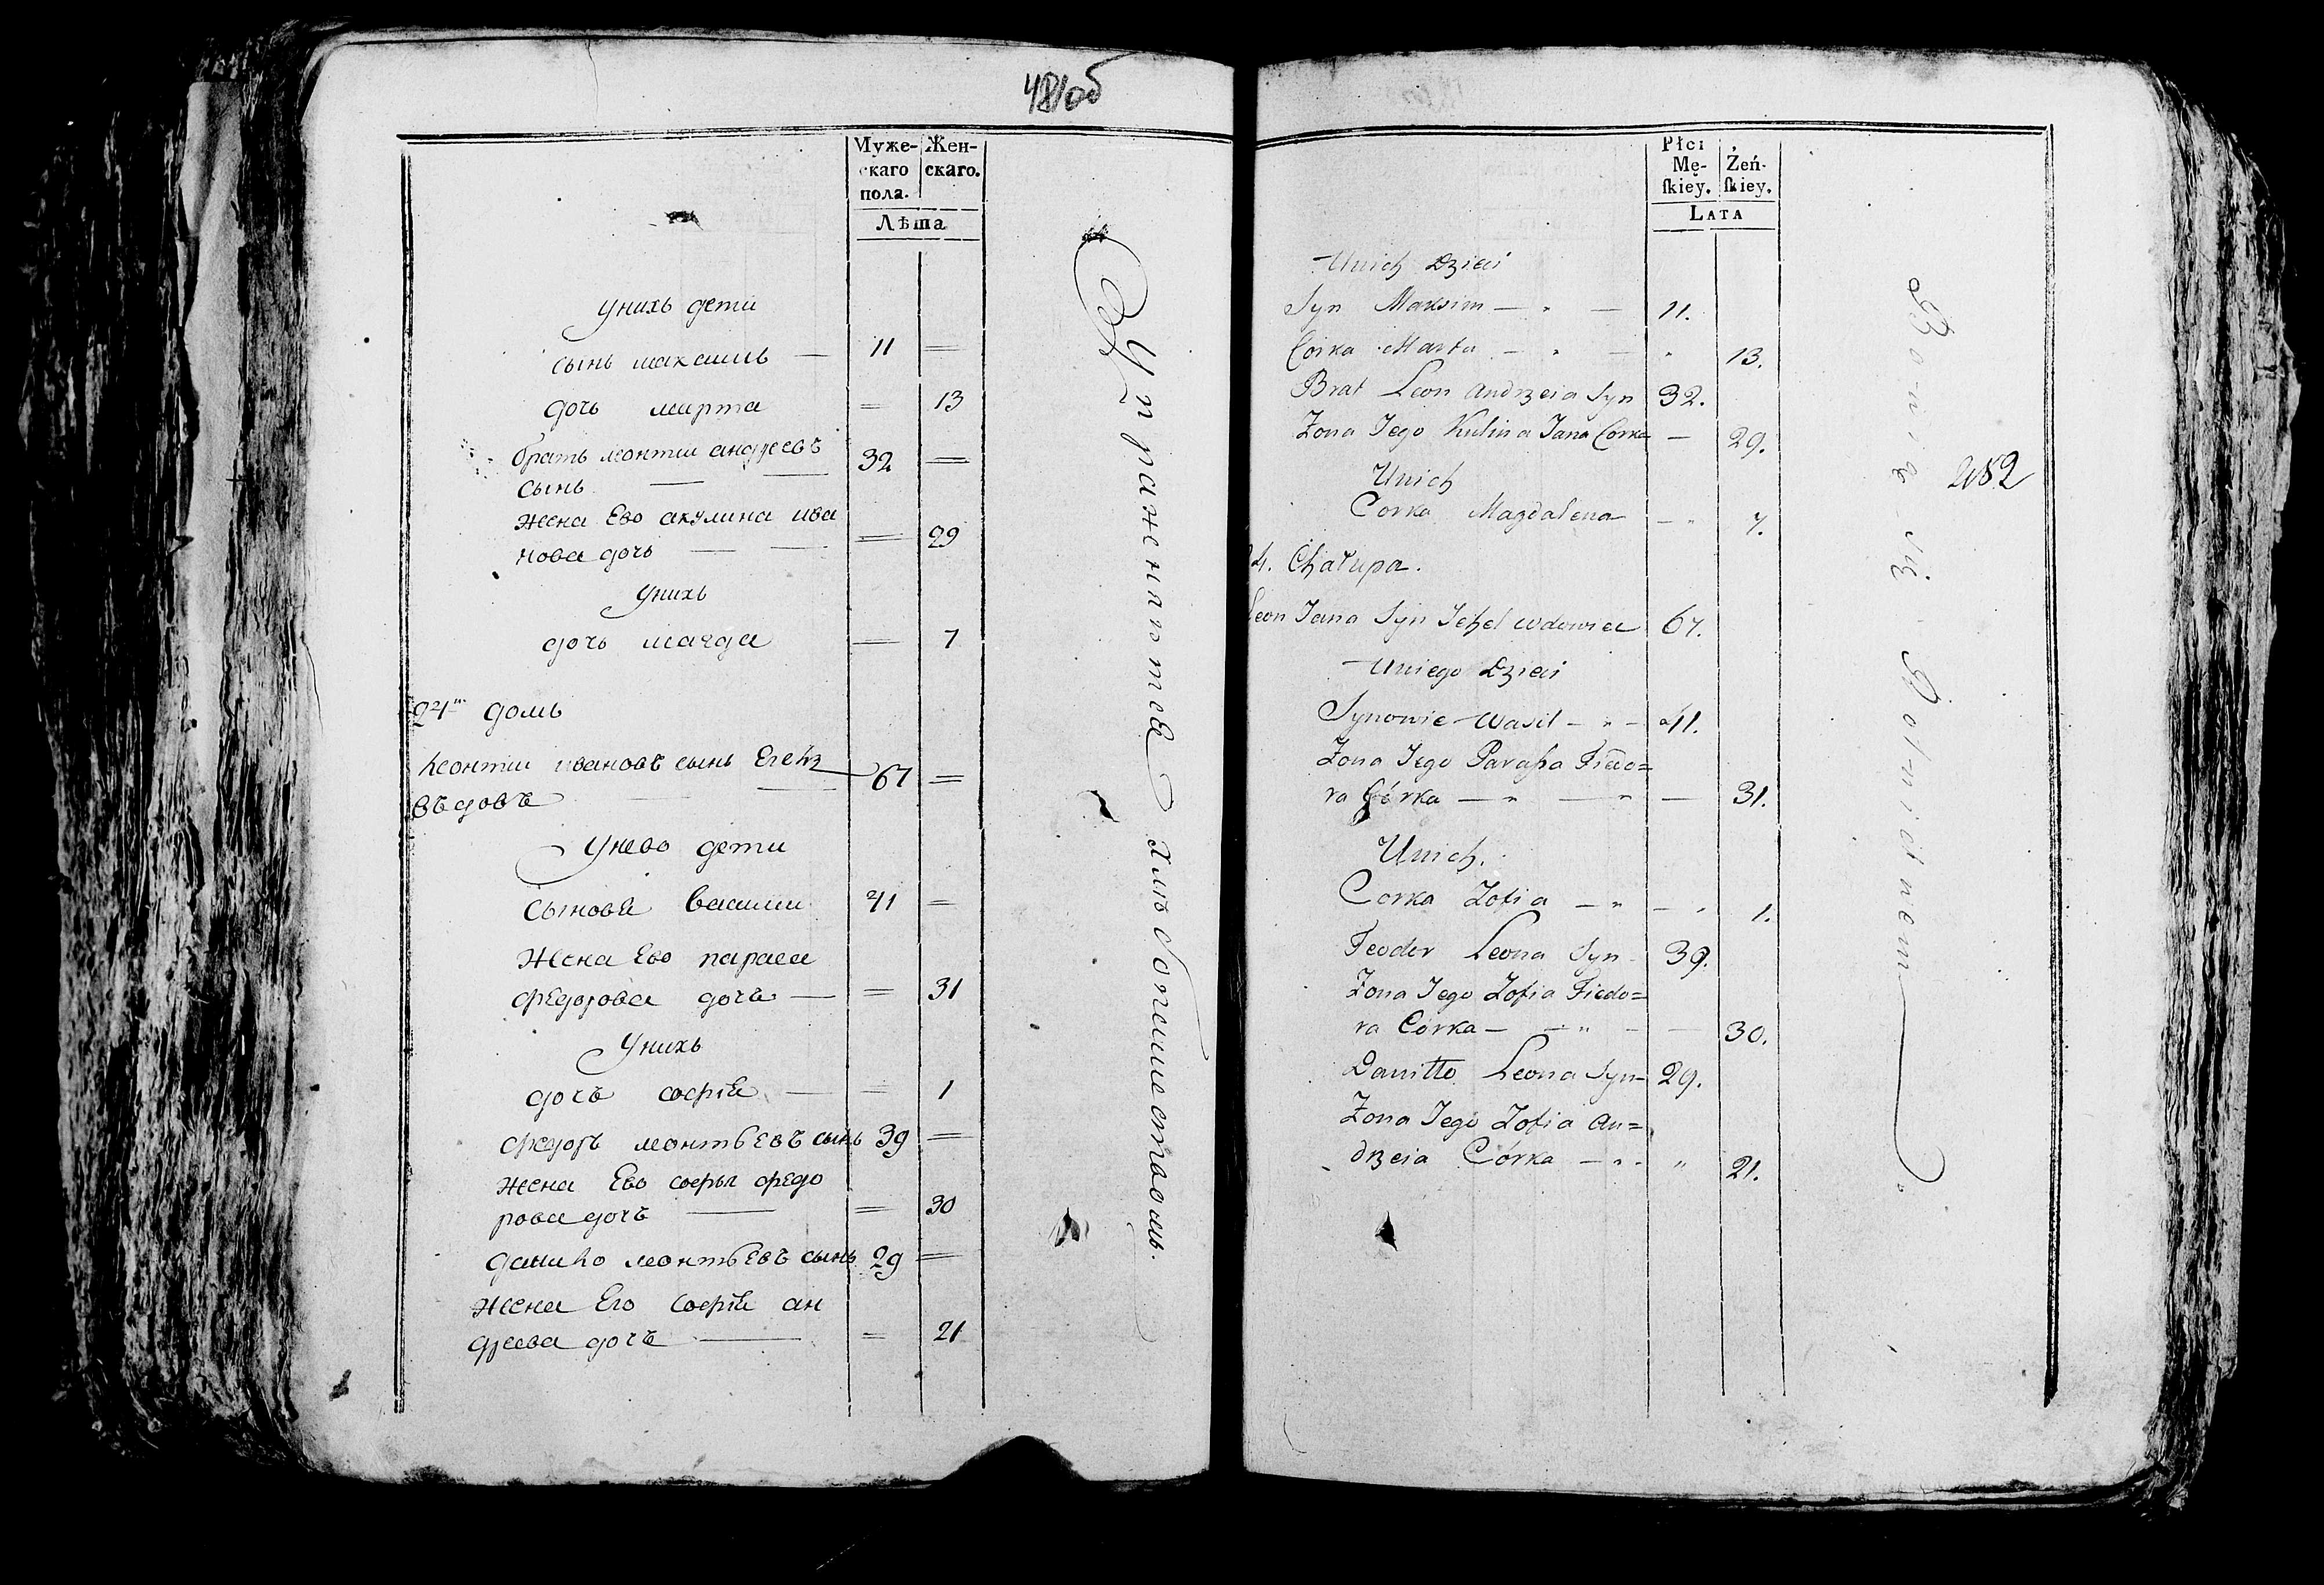 481об
Муже- Жен-
скаго скаго.
пола.
Лѣта
Унихъ дети
сынъ максимъ — 11 =
дочь марта = 13
братъ леонтии андреевъ
сынъ — — 32 =
жена Ево акулина ива
нова дочь — — = 29
Унихъ
дочь магда — 7
24й домъ
Леонтии ивановъ сынъ
вѣдовъ — — 67 =
Унево дети
Сыновя василии 41 =
жена Ево параса
федорова дочъ — = 31
Унихъ
дочъ софiя — = 1
федоръ леонтьевъ сынъ 39 =
жена Ево софья федо
рова дочъ — = 30
данило леонтьевъ сынъ 29 =
жена Его софiя ан
дреева дочъ — = 21
Упражняются хлѣбопашествомъ.
Płci
Mę- Żeń-
ſkiey. ſkiey.
LATA
Unich Dzieci
Syn Maksim — " — 11.
Corka Marta — " — " 13.
Brat Leon Andrzeia Syn 32.
Żona Iego Kulina Jana Corka — 29.
Unich
Corka Magdalena — " 7.
4. Chałupa.
Leon Jana Syn wdowiec 67.
Uniego Dzieci
Synowie Wasil — " — 41.
Żona Iego Parasha Fiedo=
ra Córka — " — " — 31.
Unich.
Corka Zofia — " — " 1.
Feodor Leona Syn 39.
Żona Iego Zofia Fiedo=
ra Córka — — " — — 30.
Daniłło Leona Syn — 29.
Żona Iego Zofia An=
drzeia Córka — " " " 21.
Bawią się Rolnictwem
482